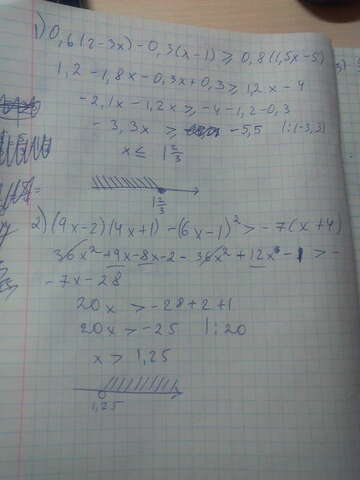 1) 0,6(2-3x)-0,3(x-1) ≥ 0,8(1,5x-5)
1,2-1,8x-0,3x+0,3 ≥ 1,2x-4
-2,1x-1,2x ≥ -4-1,2-0,3
-3,3x ≥ -5,5 |:(-3,3)
x ≤ 1 2/3
1 2/3
2) (9x-2)(4x+1)-(6x-1)² > -7(x+4)
36x²+9x-8x-2-36x²+12x-1 > -
-7x-28
20x > -28+2+1
20x > -25 |:20
x > 1,25
1,25
3)